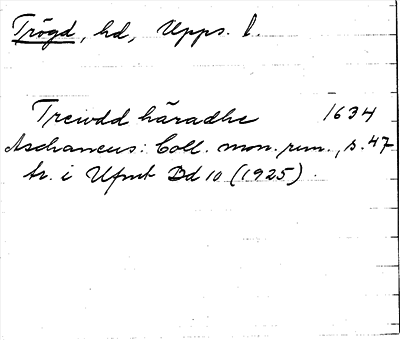 Trögd, hd, Upps. l.
Treiodd häradhe 1634
Aschaneus: Coll. mon. run., s. 47
tr. i Ufmt Bd 10 (1925).